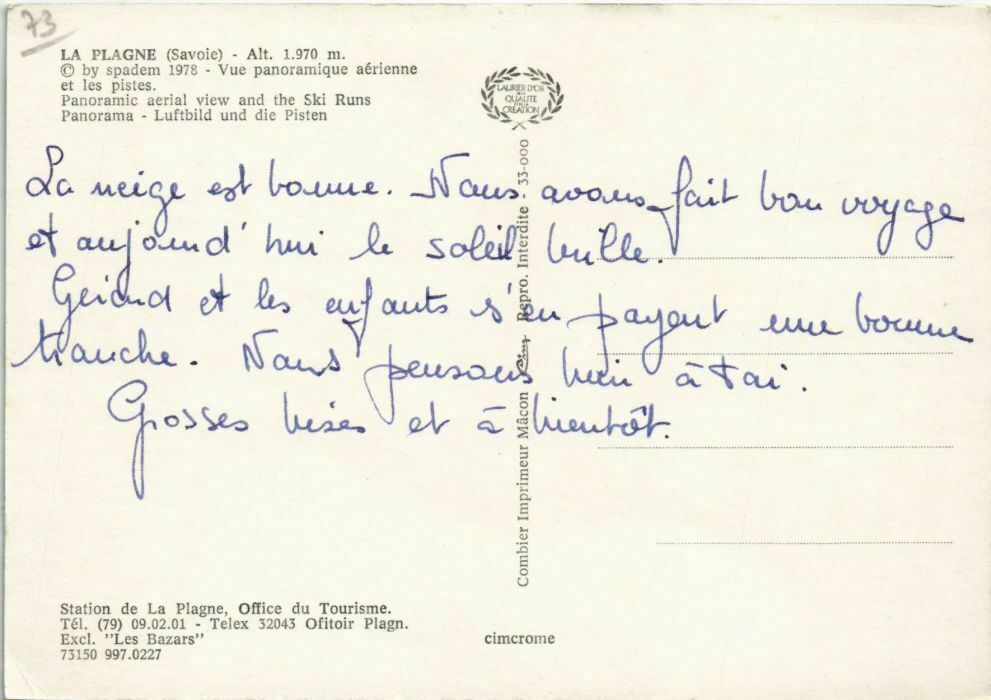 73
LA PLAGNE (Savoie) - Alt. 1.970 m.
© by spadem 1978 - Vue panoramique aérienne
et les pistes.
Panoramic aerial view and the Ski Runs
Panorama - Luftbild und die Pisten
LAURIER D'OR
DE LA
QUALITE
ET DE LA
CREATION
La neige est bonne. Nous avons fait bon voyage
et aujourd'hui le soleil brille.
Gérard et les enfants s'en payent une bonne
tranche. Nous pensons bien à toi.
Grosses bises et à bientôt.
Combier Imprimeur Mâcon Cim Repro. Interdite - 33-000
Station de La Plagne, Office du Tourisme.
Tél. (79) 09.02.01 - Telex 32043 Ofitoir Plagn.
Excl. "Les Bazars"
73150 997.0227
cimcrome